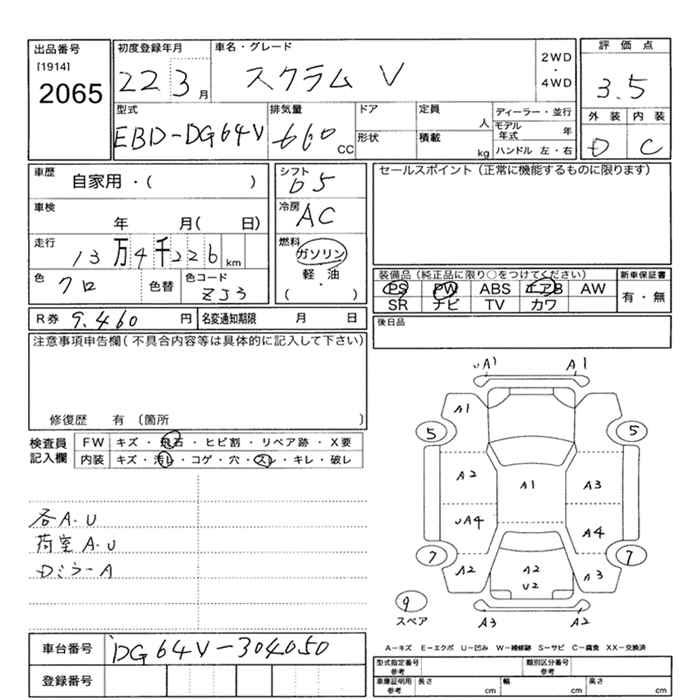 出品番号
[1914]
2065
初度登録年月
22 3月
車名・グレード
スクラム V
2WD
・
4WD
評価点
3.5
外装 内装
D C
型式
EBD-DG64V
排気量
660 CC
ドア
形状
定員
人
積載
kg
ディーラー・並行
モデル年式 年
ハンドル 左・右
車歴
自家用・( )
車検
年 月( 日)
走行
13万4千226km
色
クロ
色替
色コード
ZJ3
シフト
D5
冷房
AC
燃料
ガソリン
軽・油
( )
セールスポイント(正常に機能するものに限ります)
装備品(純正品に限り○をつけてください)
PS PW ABS エアB AW
SR ナビ TV カワ
新車保証書
有・無
R券 9.460円
名変通知期限 月 日
後日品
注意事項申告欄(不具合内容等は具体的に記入して下さい)
修復歴 有 〔箇所 〕
検査員
記入欄
FW キズ・飛石・ヒビ割・リペア跡・X要
内装 キズ・汚レ・コゲ・穴・スレ・キレ・破レ
各A.U
荷室A.U
Dミラ-A
UA1 A1
A1
5 5
A2 A1 A3
UA4 A4
7 7
A2 A2 A3
U2
9
スペア
A3 A2
A-キズ E-エクボ U-凹み W-補修跡 S-サビ C-腐食 XX-交換済
車台番号 DG64V-304050
登録番号
型式指定番号
参考
類別区分番号
参考
車庫証明用
参考
長さ cm
幅 cm
高さ cm